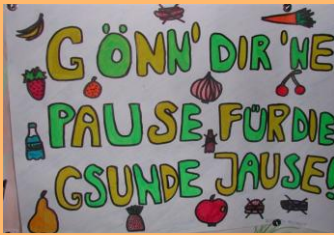 GÖNN' DIR 'NE
PAUSE FÜR DIE
GSUNDE JAUSE!